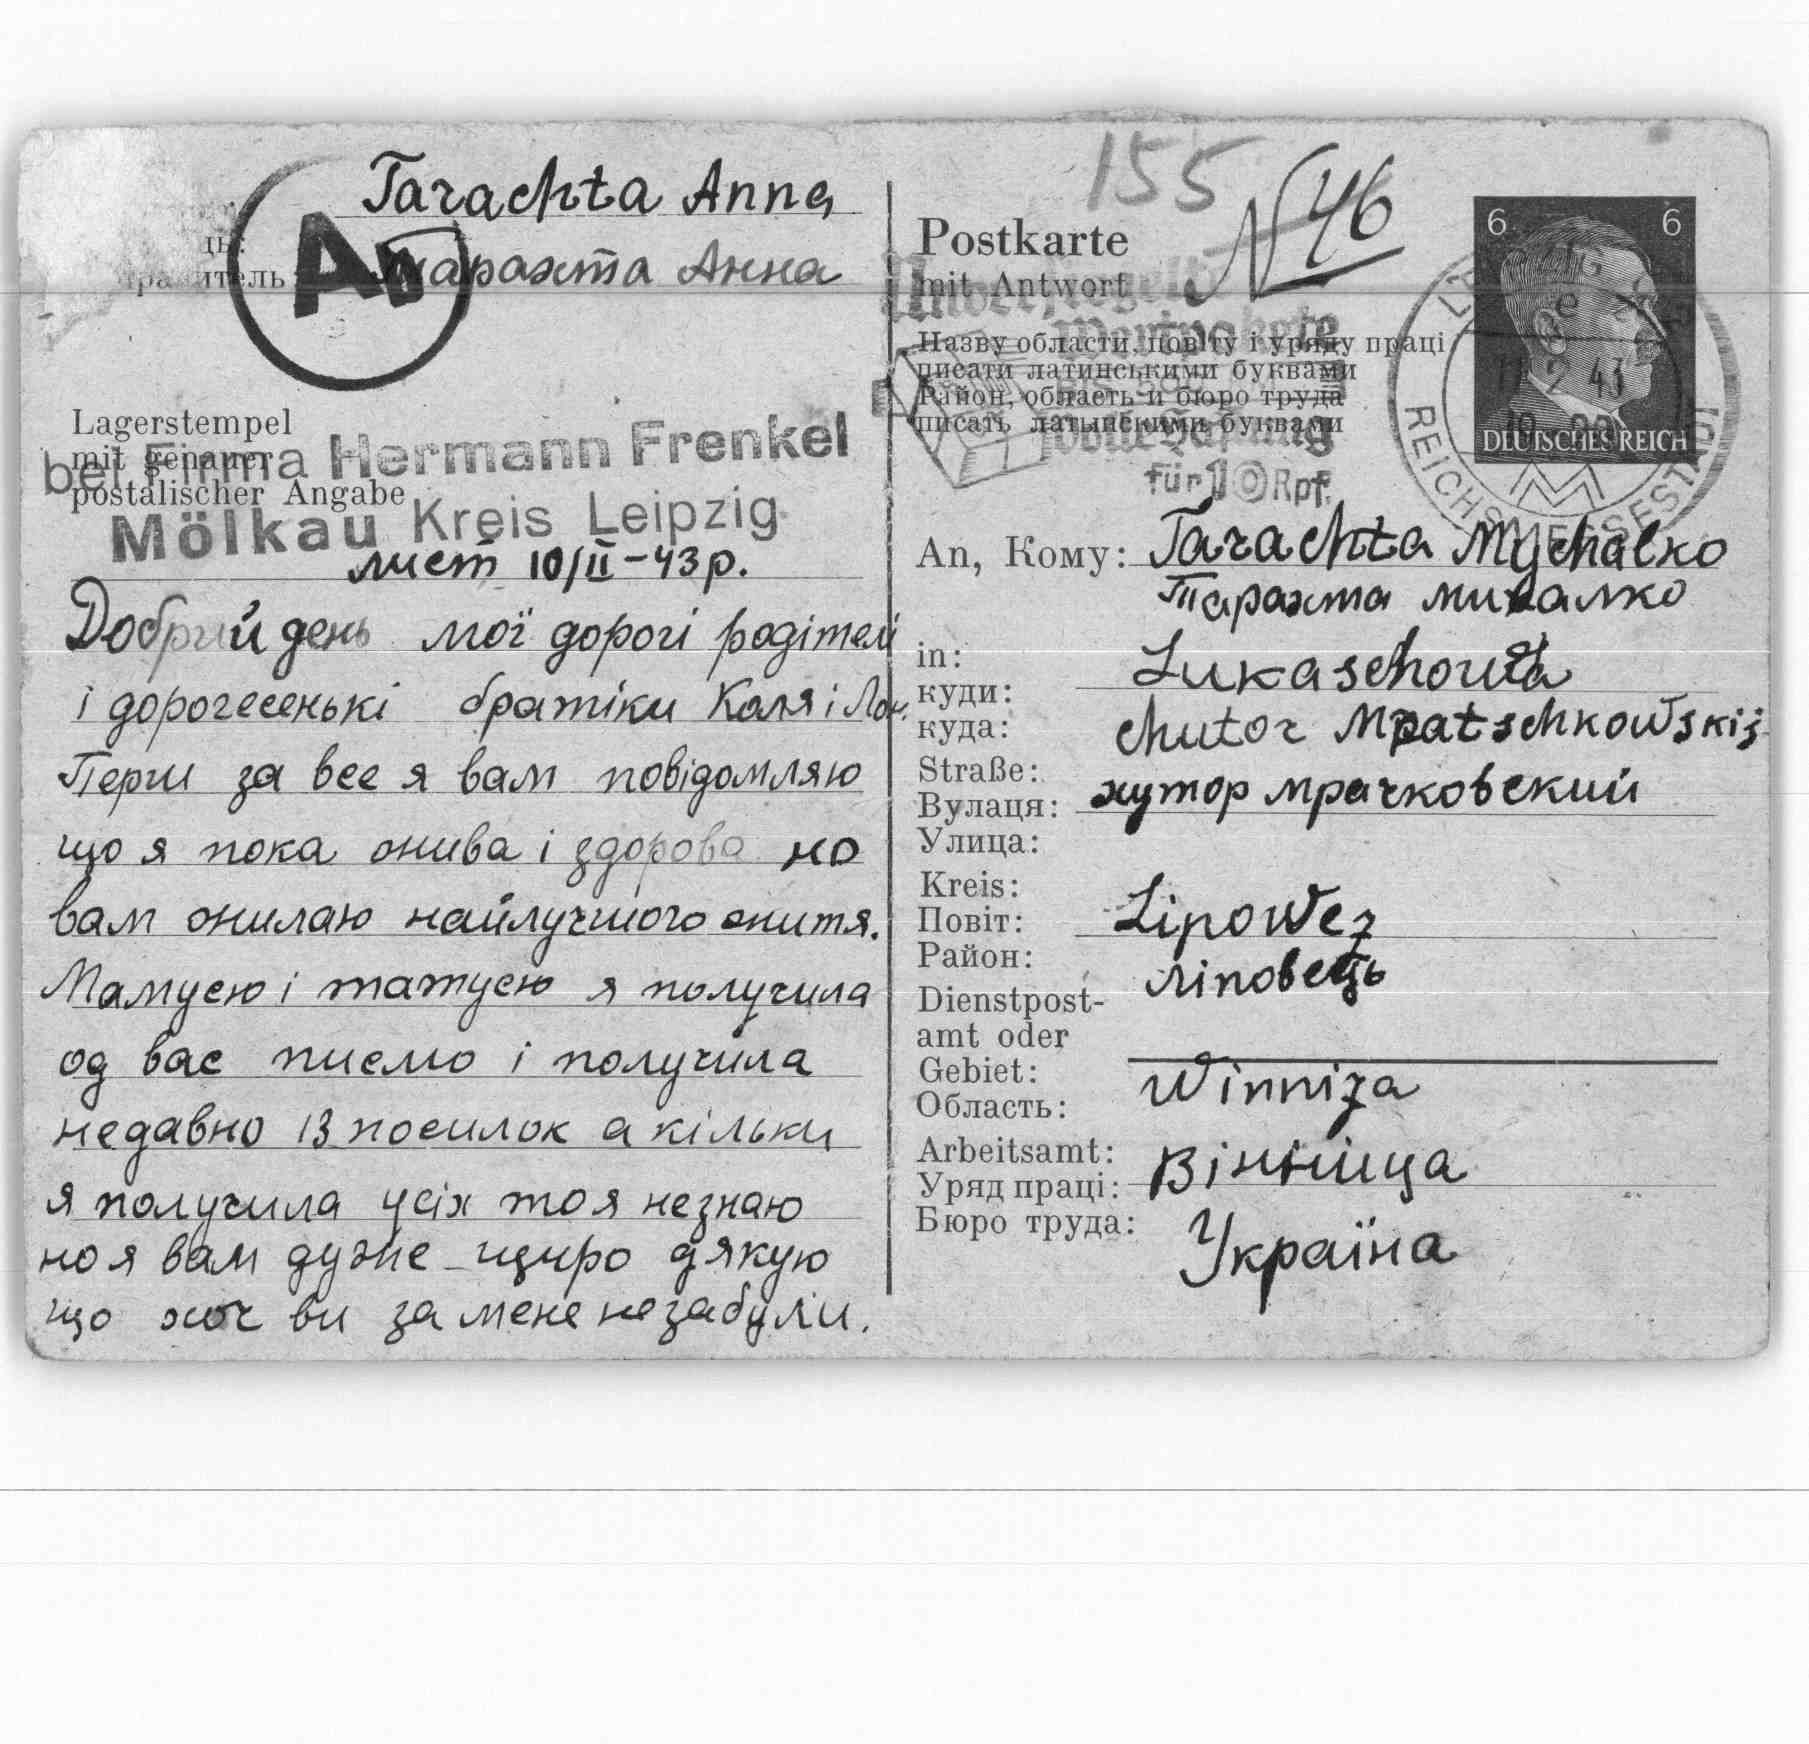 Tarachta Anna
Тарахта Анна
Lagerstempel
mit genauer
postalischer Angabe
bei Firma Hermann Frenkel
Mölkau Kreis Leipzig
лист 10/II-43р.
Добрий день мої дорогі родітелі
і дорогесенькі братіки Коля і Лон.
Перш за все я вам повідомляю
що я пока жива і здорова но
вам жилаю найлучшого житя.
Мамусю і татусю я получила
од вас писмо і получила
недавно 13 посилок а кільки
я получила усіх то я незнаю
но я вам дуже щиро дякую
що хоч ви за мене незабули.
155
N46
Postkarte
mit Antwort
Назву области, повіту і уряду праці
писати латинськими буквами
Район, область и бюро труда
писать латынскими буквами
Wertpakete
für 10 Rpf.
6 6
DEUTSCHES REICH
11 2 43
REICHSMESSESTADT
An, Кому: Tarachta Mychalko
Тарахта Михалко
in:
куди:
куда:
Lukaschowka
chutor Mpatschkowskij
Straße:
Вулаця:
Улица:
хутор мрачковский
Kreis:
Повіт:
Район:
Lipowez
Ліповець
Dienstpost-
amt oder
Gebiet:
Область:
Winniza
Arbeitsamt:
Уряд праці:
Бюро труда:
Вінница
Україна